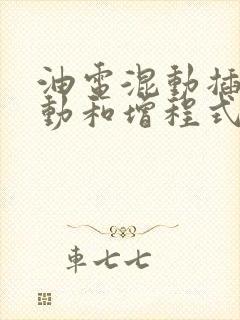 油電混動插
動和增程式
車七七